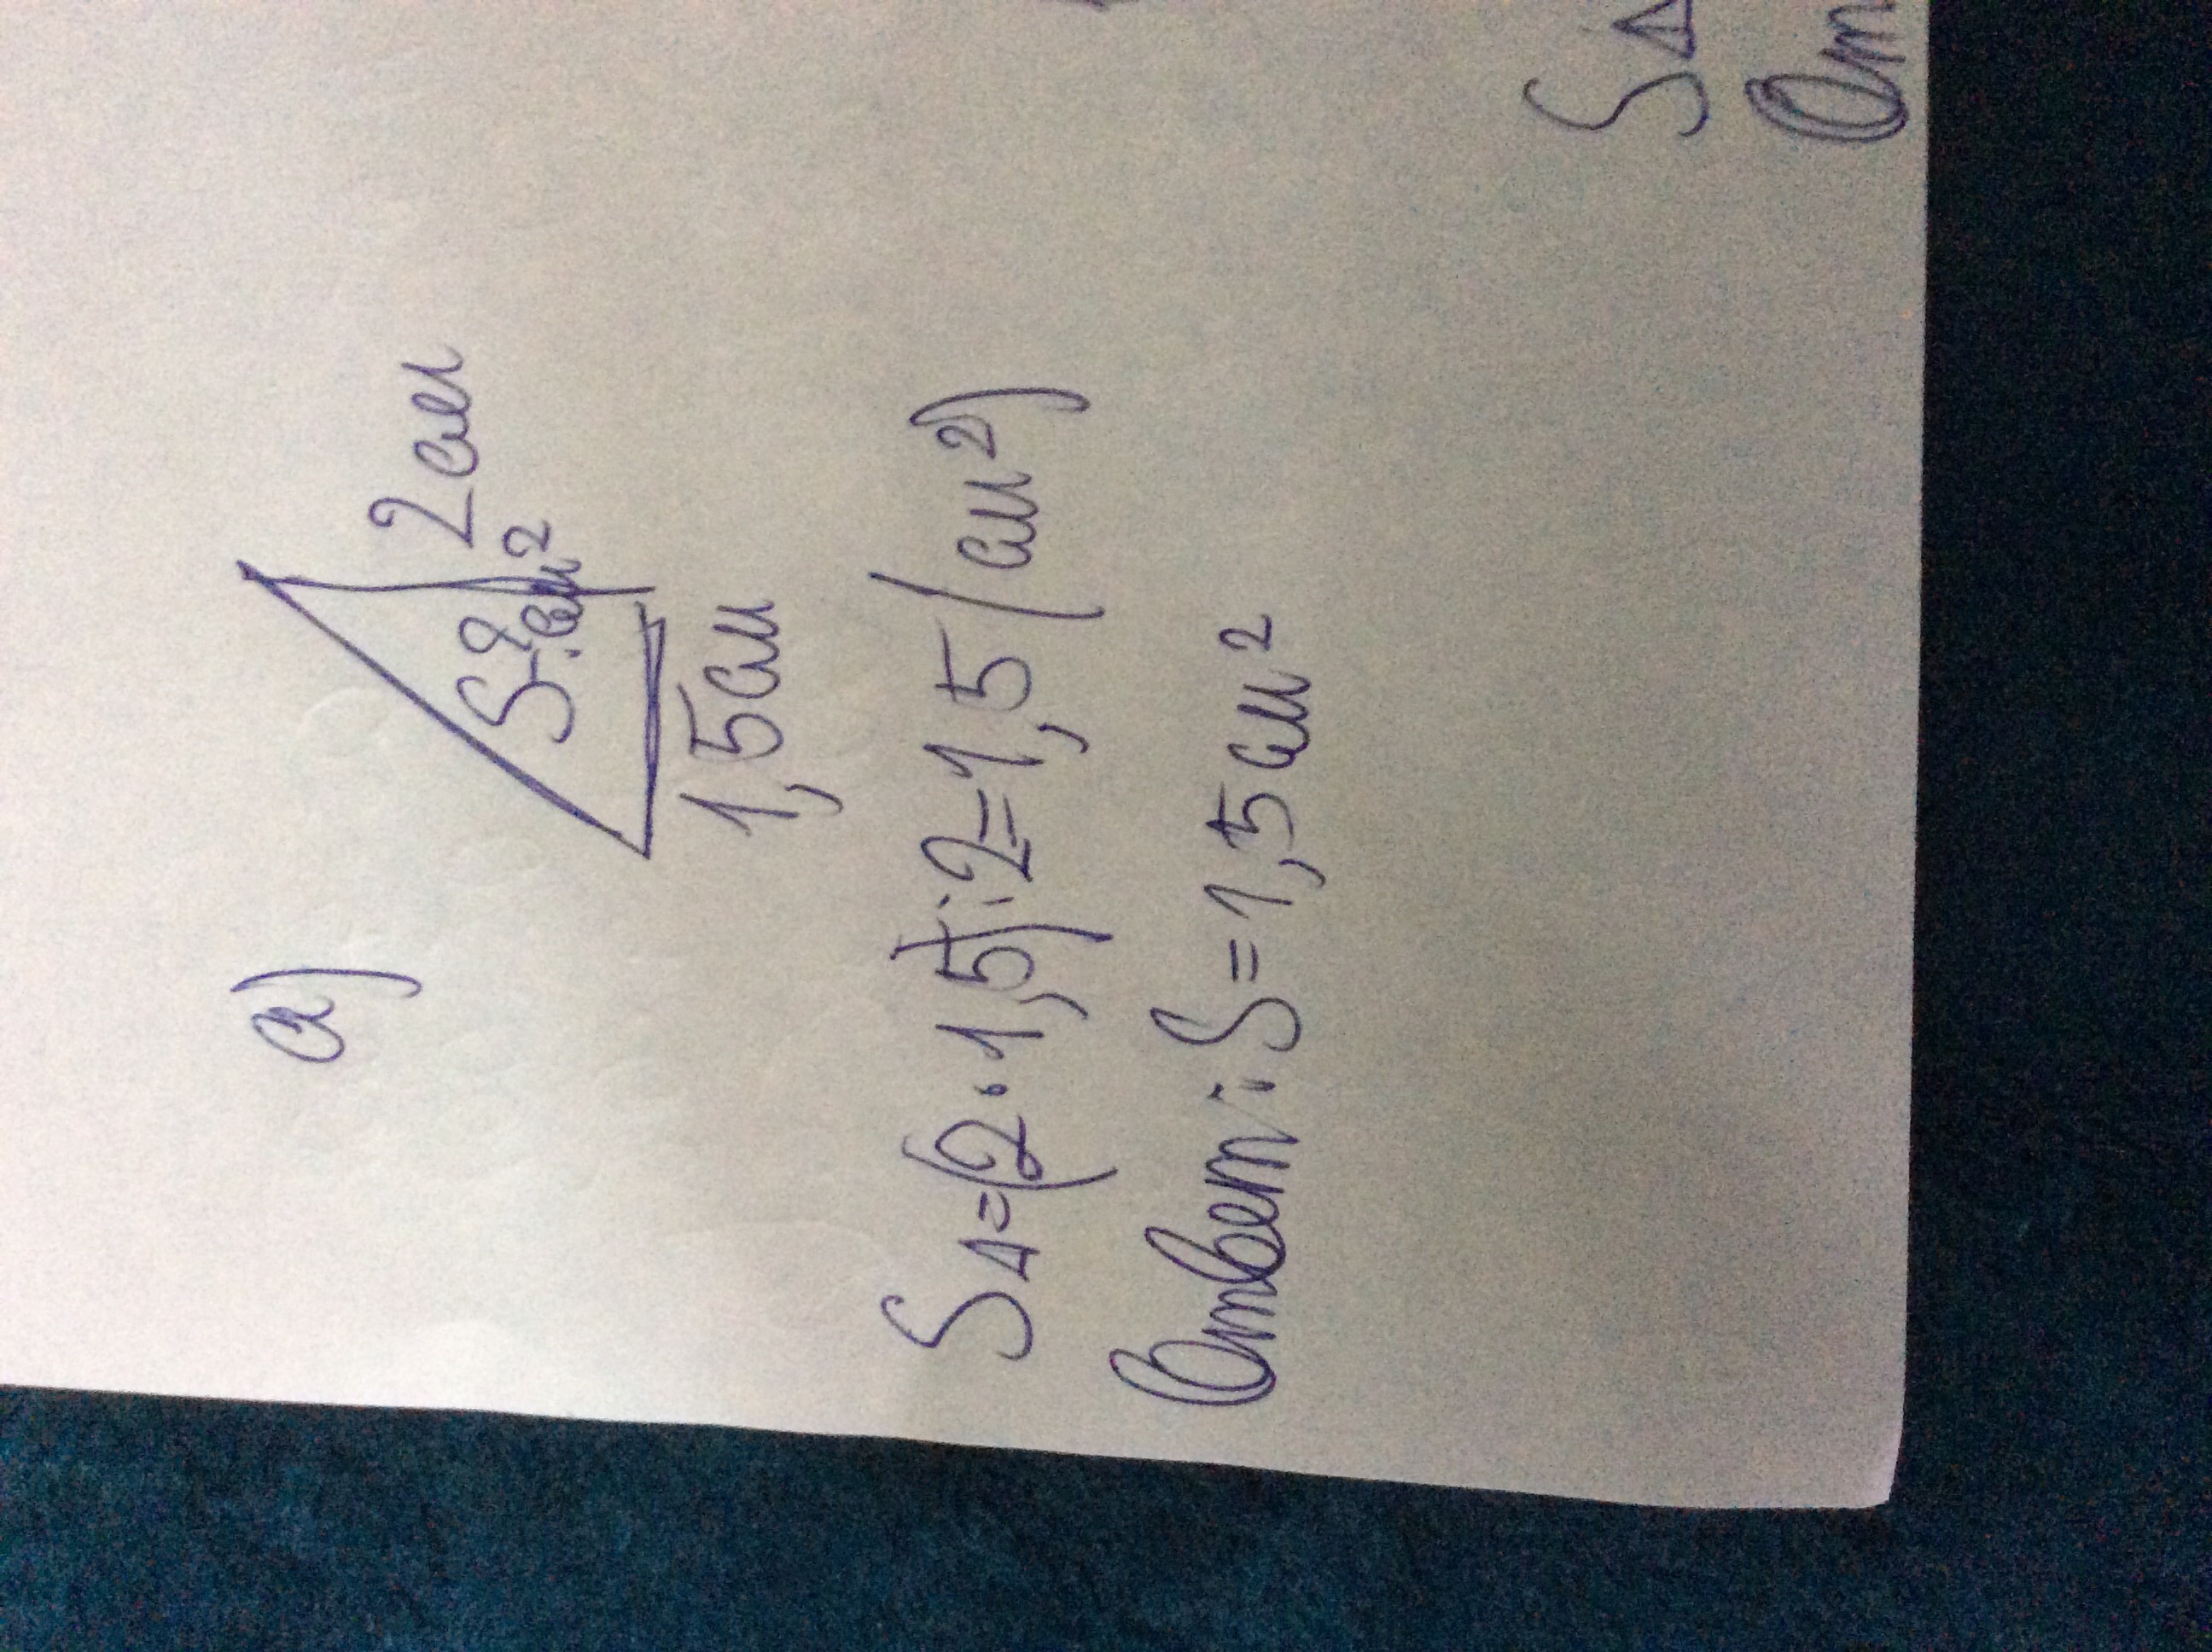 а)
2 см
S-? см²
1,5 см
S△=(2·1,5):2=1,5(см²)
Ответ: S=1,5 см²
S△
От